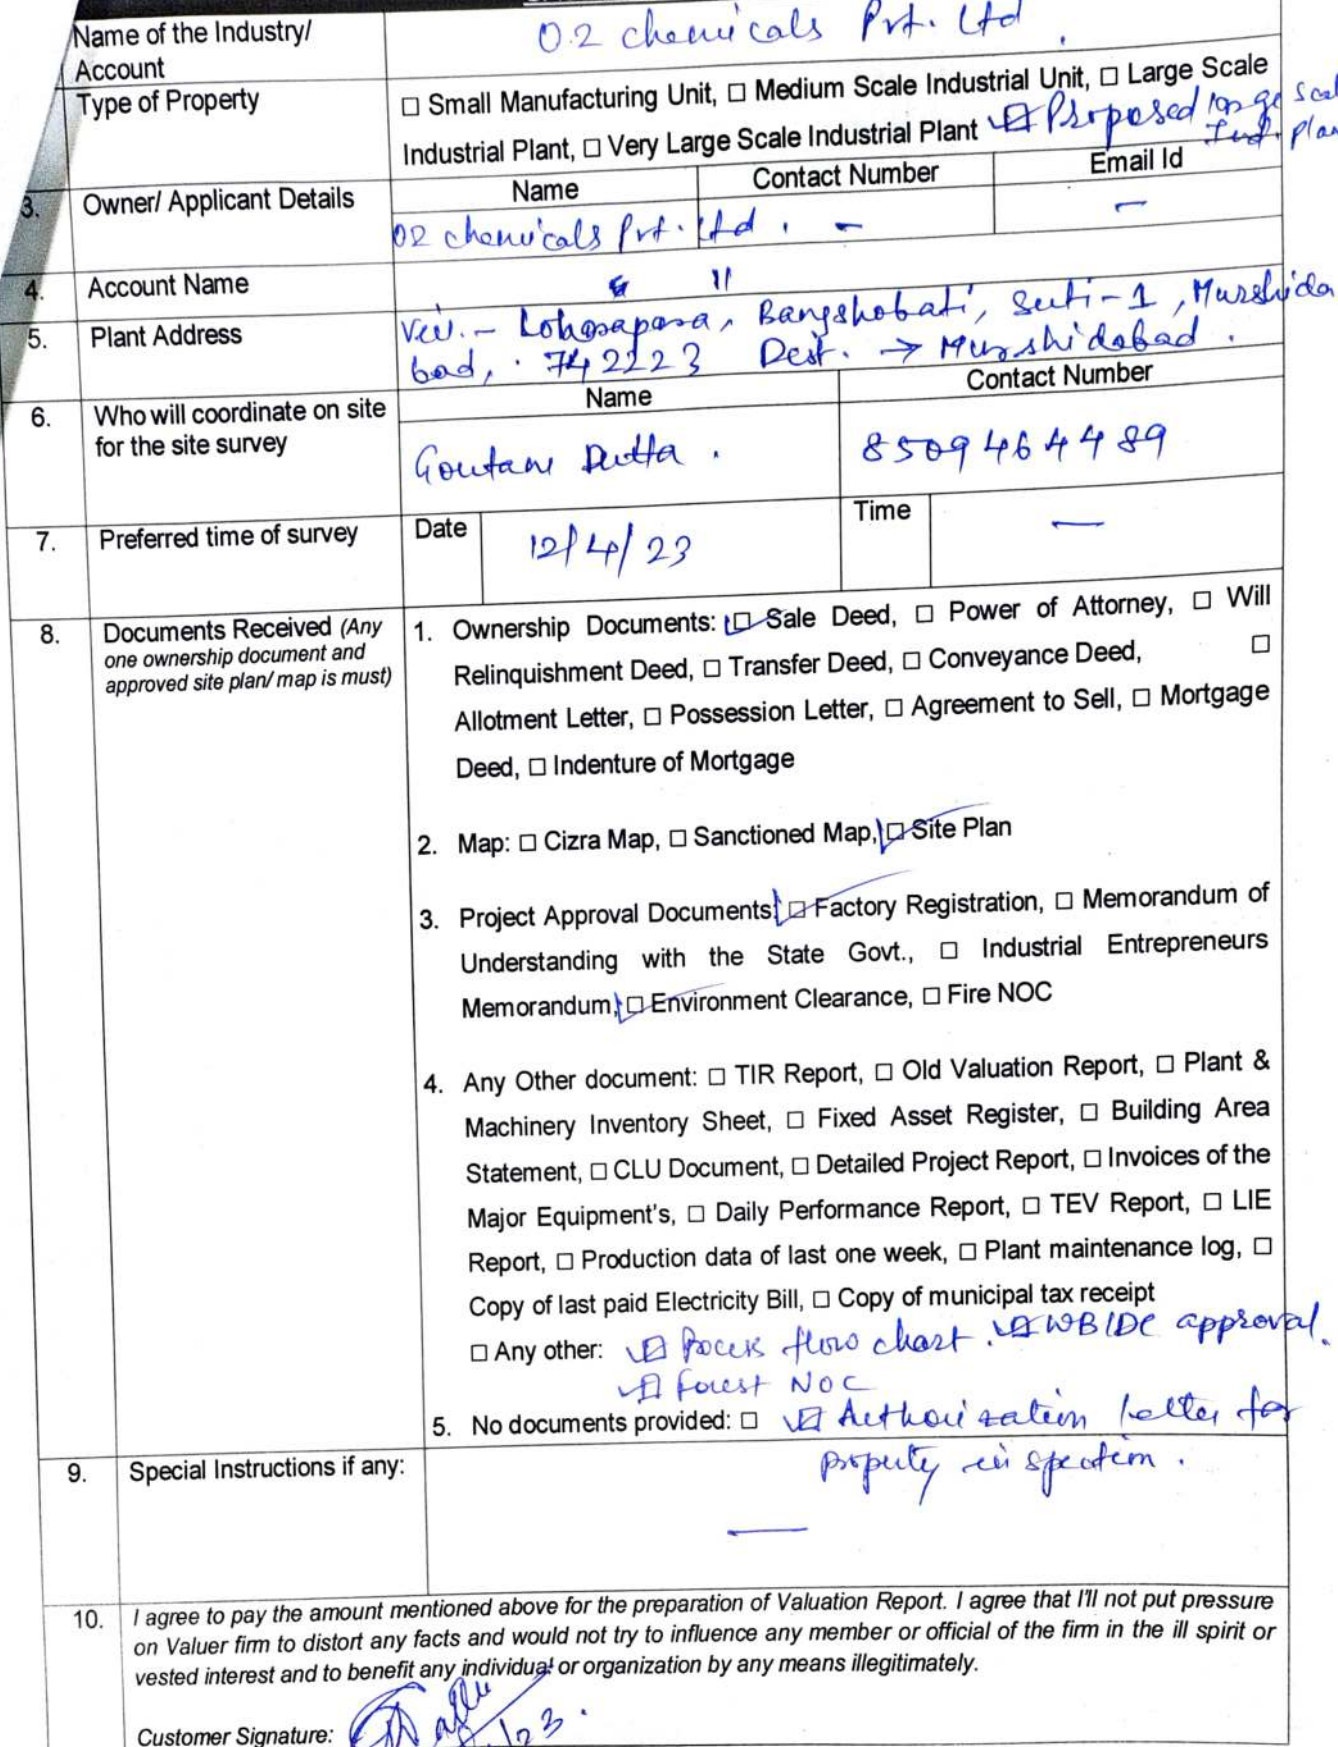 Name of the Industry/ Account
O2 chemicals Pvt. Ltd.
Type of Property
☐ Small Manufacturing Unit, ☐ Medium Scale Industrial Unit, ☐ Large Scale
Industrial Plant, ☐ Very Large Scale Industrial Plant ☑ Proposed large scal
Ind. plan
3. Owner/ Applicant Details
Name Contact Number Email Id
O2 chemicals Pvt. Ltd. - -
4. Account Name
"
5. Plant Address
Bangshobati, Suti-1, Murshida
bad, 742223 Dist. → Murshidabad.
6. Who will coordinate on site for the site survey
Name Contact Number
Goutam Dutta. 8509464489
7. Preferred time of survey
Date 12/4/23 Time —
8. Documents Received (Any one ownership document and approved site plan/ map is must)
1. Ownership Documents: ☑ Sale Deed, ☐ Power of Attorney, ☐ Will
Relinquishment Deed, ☐ Transfer Deed, ☐ Conveyance Deed, ☐
Allotment Letter, ☐ Possession Letter, ☐ Agreement to Sell, ☐ Mortgage
Deed, ☐ Indenture of Mortgage
2. Map: ☐ Cizra Map, ☐ Sanctioned Map, ☑ Site Plan
3. Project Approval Documents: ☑ Factory Registration, ☐ Memorandum of
Understanding with the State Govt., ☐ Industrial Entrepreneurs
Memorandum, ☑ Environment Clearance, ☐ Fire NOC
4. Any Other document: ☐ TIR Report, ☐ Old Valuation Report, ☐ Plant &
Machinery Inventory Sheet, ☐ Fixed Asset Register, ☐ Building Area
Statement, ☐ CLU Document, ☐ Detailed Project Report, ☐ Invoices of the
Major Equipment's, ☐ Daily Performance Report, ☐ TEV Report, ☐ LIE
Report, ☐ Production data of last one week, ☐ Plant maintenance log, ☐
Copy of last paid Electricity Bill, ☐ Copy of municipal tax receipt
☐ Any other: ☑ Process flow chart. ☑ WBIDC approval.
☑ Forest NOC
5. No documents provided: ☐ ☑ Authorization letter for
property inspection.
9. Special Instructions if any:
—
10. I agree to pay the amount mentioned above for the preparation of Valuation Report. I agree that I'll not put pressure
on Valuer firm to distort any facts and would not try to influence any member or official of the firm in the ill spirit or
vested interest and to benefit any individual or organization by any means illegitimately.
Customer Signature: